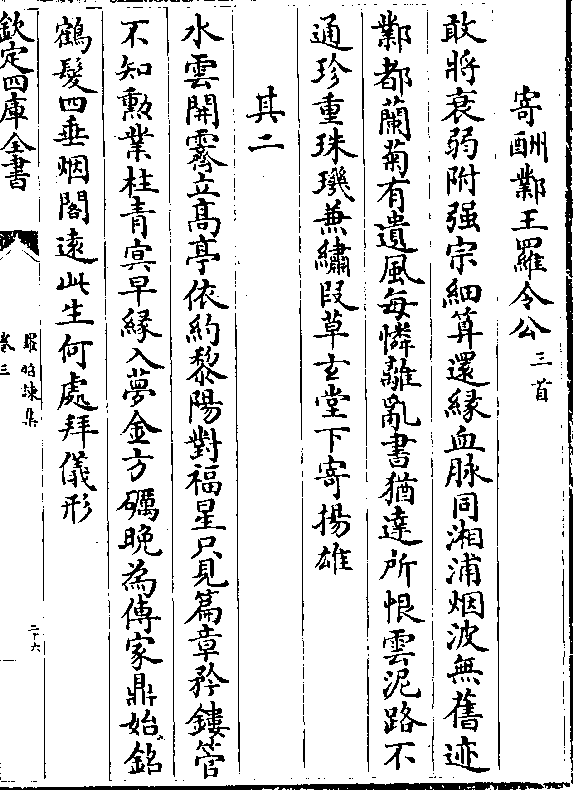 寄酬鄴王羅令公三首
敢將衰弱附强宗細算還緣血脉同湘浦烟波無舊迹
鄴都蘭菊有遺風每憐離亂書猶達所恨雲泥路不
通珍重珠璣兼繡段草玄堂下寄揚雄
其二
水雲開霽立髙亭依約黎陽對福星只見篇章矜鏤管
不知勲業柱青㝠早緣入夢金方礪晚為傳家鼎始銘
鶴髮四垂烟閣逺此生何處拜儀形
欽定四庫全書
羅昭諫集
卷三
二十六